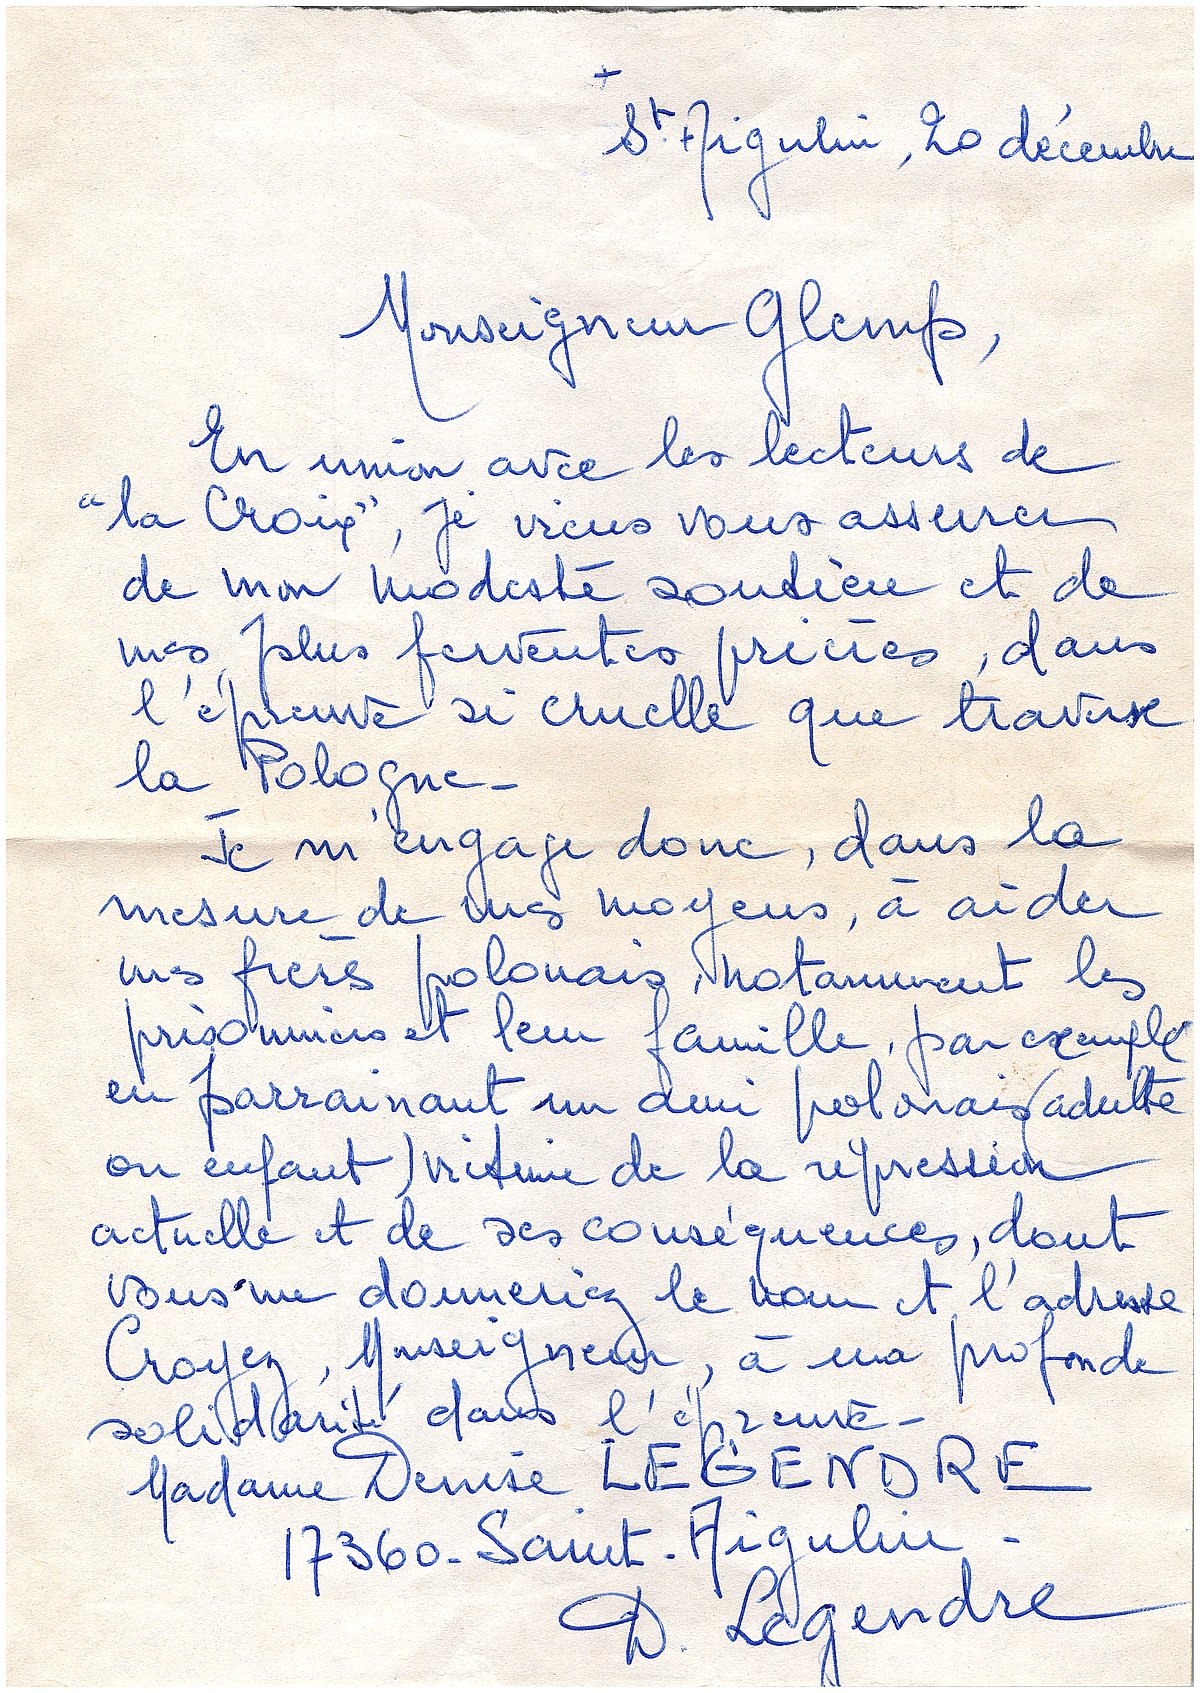 +
St. Aigulin, 20 décembre
Monseigneur Glemp,
En union avec les lecteurs de
"la Croix", je viens vous assurer
de mon modeste soutien et de
mes plus ferventes prières, dans
l'épreuve si cruelle que traverse
la Pologne -
Je m'engage donc, dans la
mesure de mes moyens, à aider
mes frères polonais, notamment les
prisonniers et leur famille, par exemple
en parrainant un ami polonais (adulte
ou enfant) victime de la répression
actuelle et de ses conséquences, dont
vous me donneriez le nom et l'adresse
Croyez, Monseigneur, à ma profonde
solidarité dans l'épreuve -
Madame Denise LEGENDRE
17360 - Saint - Aigulin -
D. Legendre